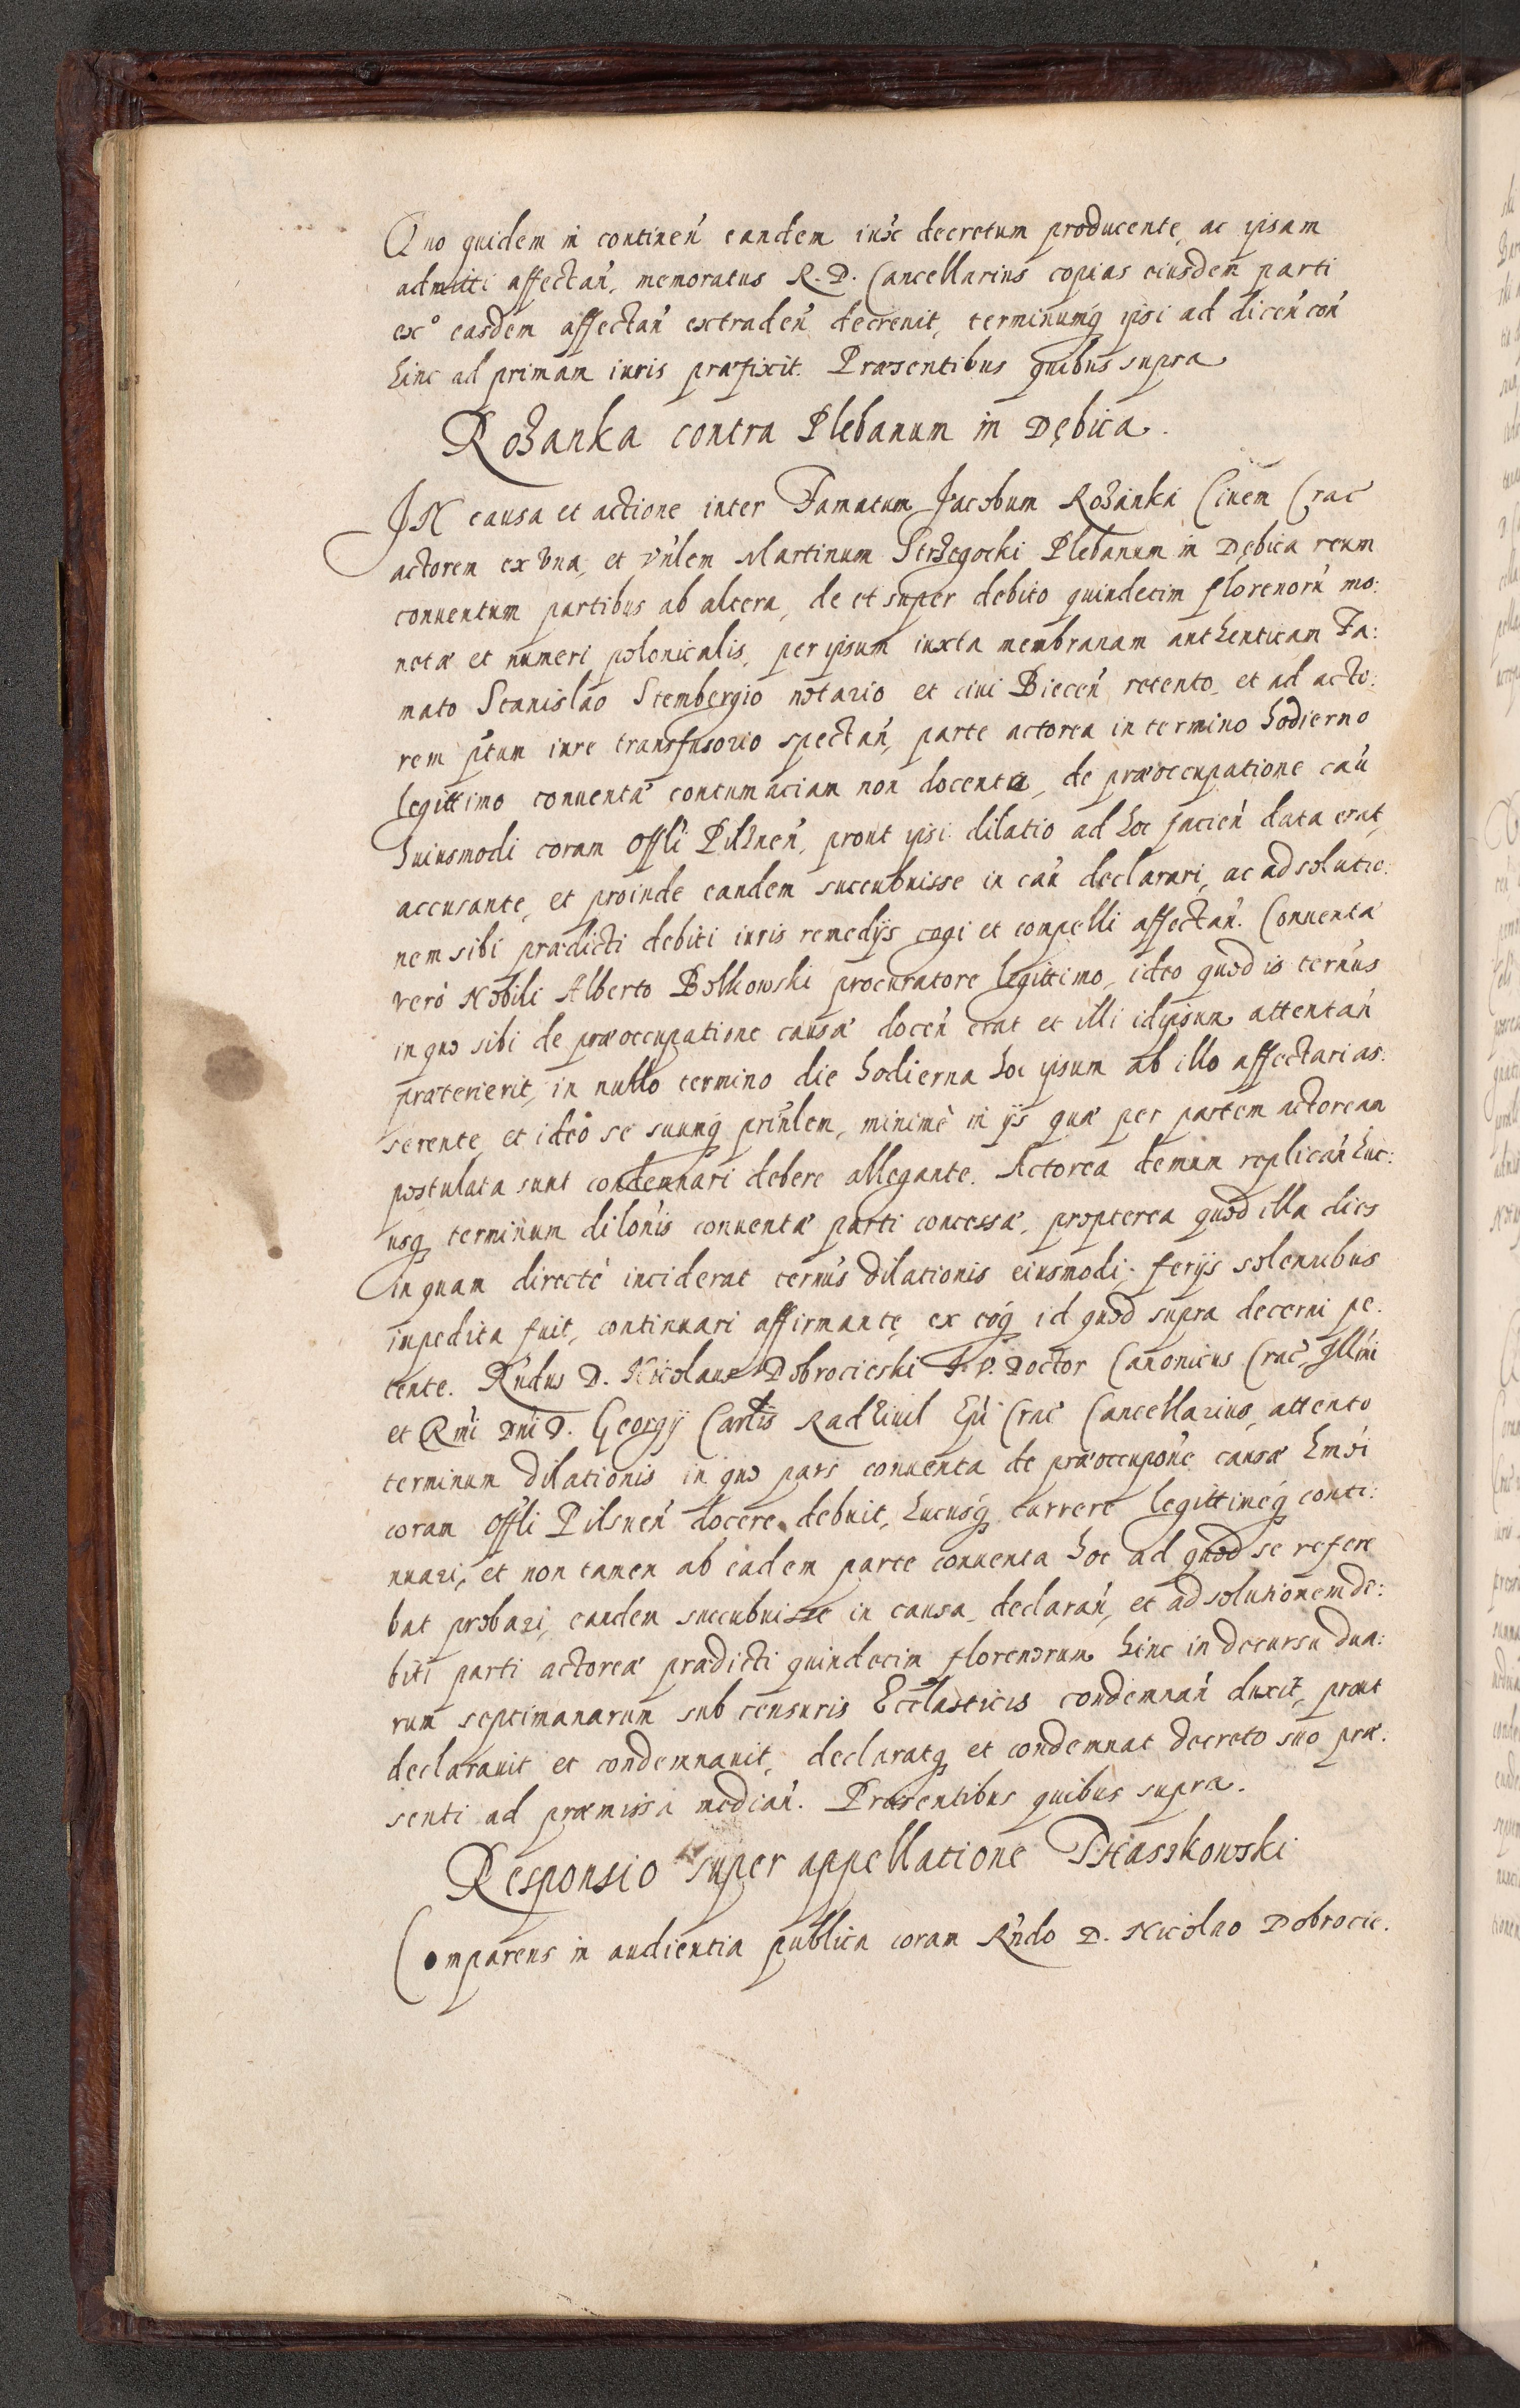 Quo quidem in continen̄ eandem inserte decretum producente, ac ipsam
admitti affectan̄, memoratus R. D. Cancellarius copias eiusdem parti
ex° easdem affectan̄ extraden̄ decreuit, terminumq́ ipsi ad dicen̄ con̄
hinc ad primam iuris præfixit. Præsentibus quibus supra
Rożanka contra Plebanum in Dębica.
IN causa et actione inter Famatum Jacobum Rożanka Ciuem Crac̄
actorem ex vna, et vn̄lem Martinum Strzegocki Plebanum in Dębica reum
conuentum partibus ab altera, de et super debito quindecim florenorū mo:
netæ et numeri polonicalis, per ipsum iuxta membranam anthenticam Fa:
mato Stanislao Stembergio notario et ciui Biecen̄ retento, et ad acto:
rem p̄tum iure transfusorio spectan̄, parte actorea in termino hodierno
legittimo conuentæ contumaciam non docentis, de præoccupatione cau̅
huiusmodi coram Offl̄i Pilznen̄, prout ipsi dilatio ad hoc facien̄ data erat,
accusante, et proinde eandem succubuisse in cau̅ declarari, ac ad solutio:
nem sibi prædicti debiti iuris remedijs cogi et compelli affectan̄. Conuenta
verò Nobili Alberto Bolkowski procuratore legittimo, ideo quod is tern̄us
in quo sibi de præoccupatione causæ docen̄ erat et illi idipsum attentan̄
præterierit, in nullo termino die hodierna hoc ipsum ab illo affectari as:
serente, et ideò se suumq́ prin̄lem, minimè in ijs quæ per partem actoream
postulata sunt condemnari debere allegante. Actorea demum replican̄ huc:
usq́ terminum dilōnis conuentæ parti concessæ, propterea quod illa dies
in quam directè inciderat tern̄us dilationis eiusmodi, ferijs solennibus
inpedita fuit, continuari affirmante, ex eoq́ id quod supra decerni pe:
tente. Rn̄dus D. Nicolaus Dobrocieski J. V. Doctor Canonicus Crac̄, Illm̄i
et Rm̄i Dn̄i D. Georgij Carlis Radziuil Ep̄i Crac̄ Cancellarius, attento
terminum dilationis in quo pars conuenta de præoccupōne causæ hm̄oi
coram Offl̄i Pilsnen̄ docere debuit, hucusq́ currere legittimeq́ conti:
nuari, et non tamen ab eadem parte conuenta hoc ad quod se refere
bat probari, eandem succubuisse in causa declaran̄, et ad solutionem de:
biti parti actoreæ prædicti quindecim florenorum hinc in decursu dua:
rum septimanarum sub censuris Eccl̄asticis condemnan̄ duxit, prout
declarauit et condemnauit, declaratq́ et condemnat decreto suo præ:
senti ad præmissa median̄. Præsentibus quibus supra.
Responsio super appellatione Piasskowski
Comparens in audientia publica coram Rn̄do D. Nicolao Dobrocie: